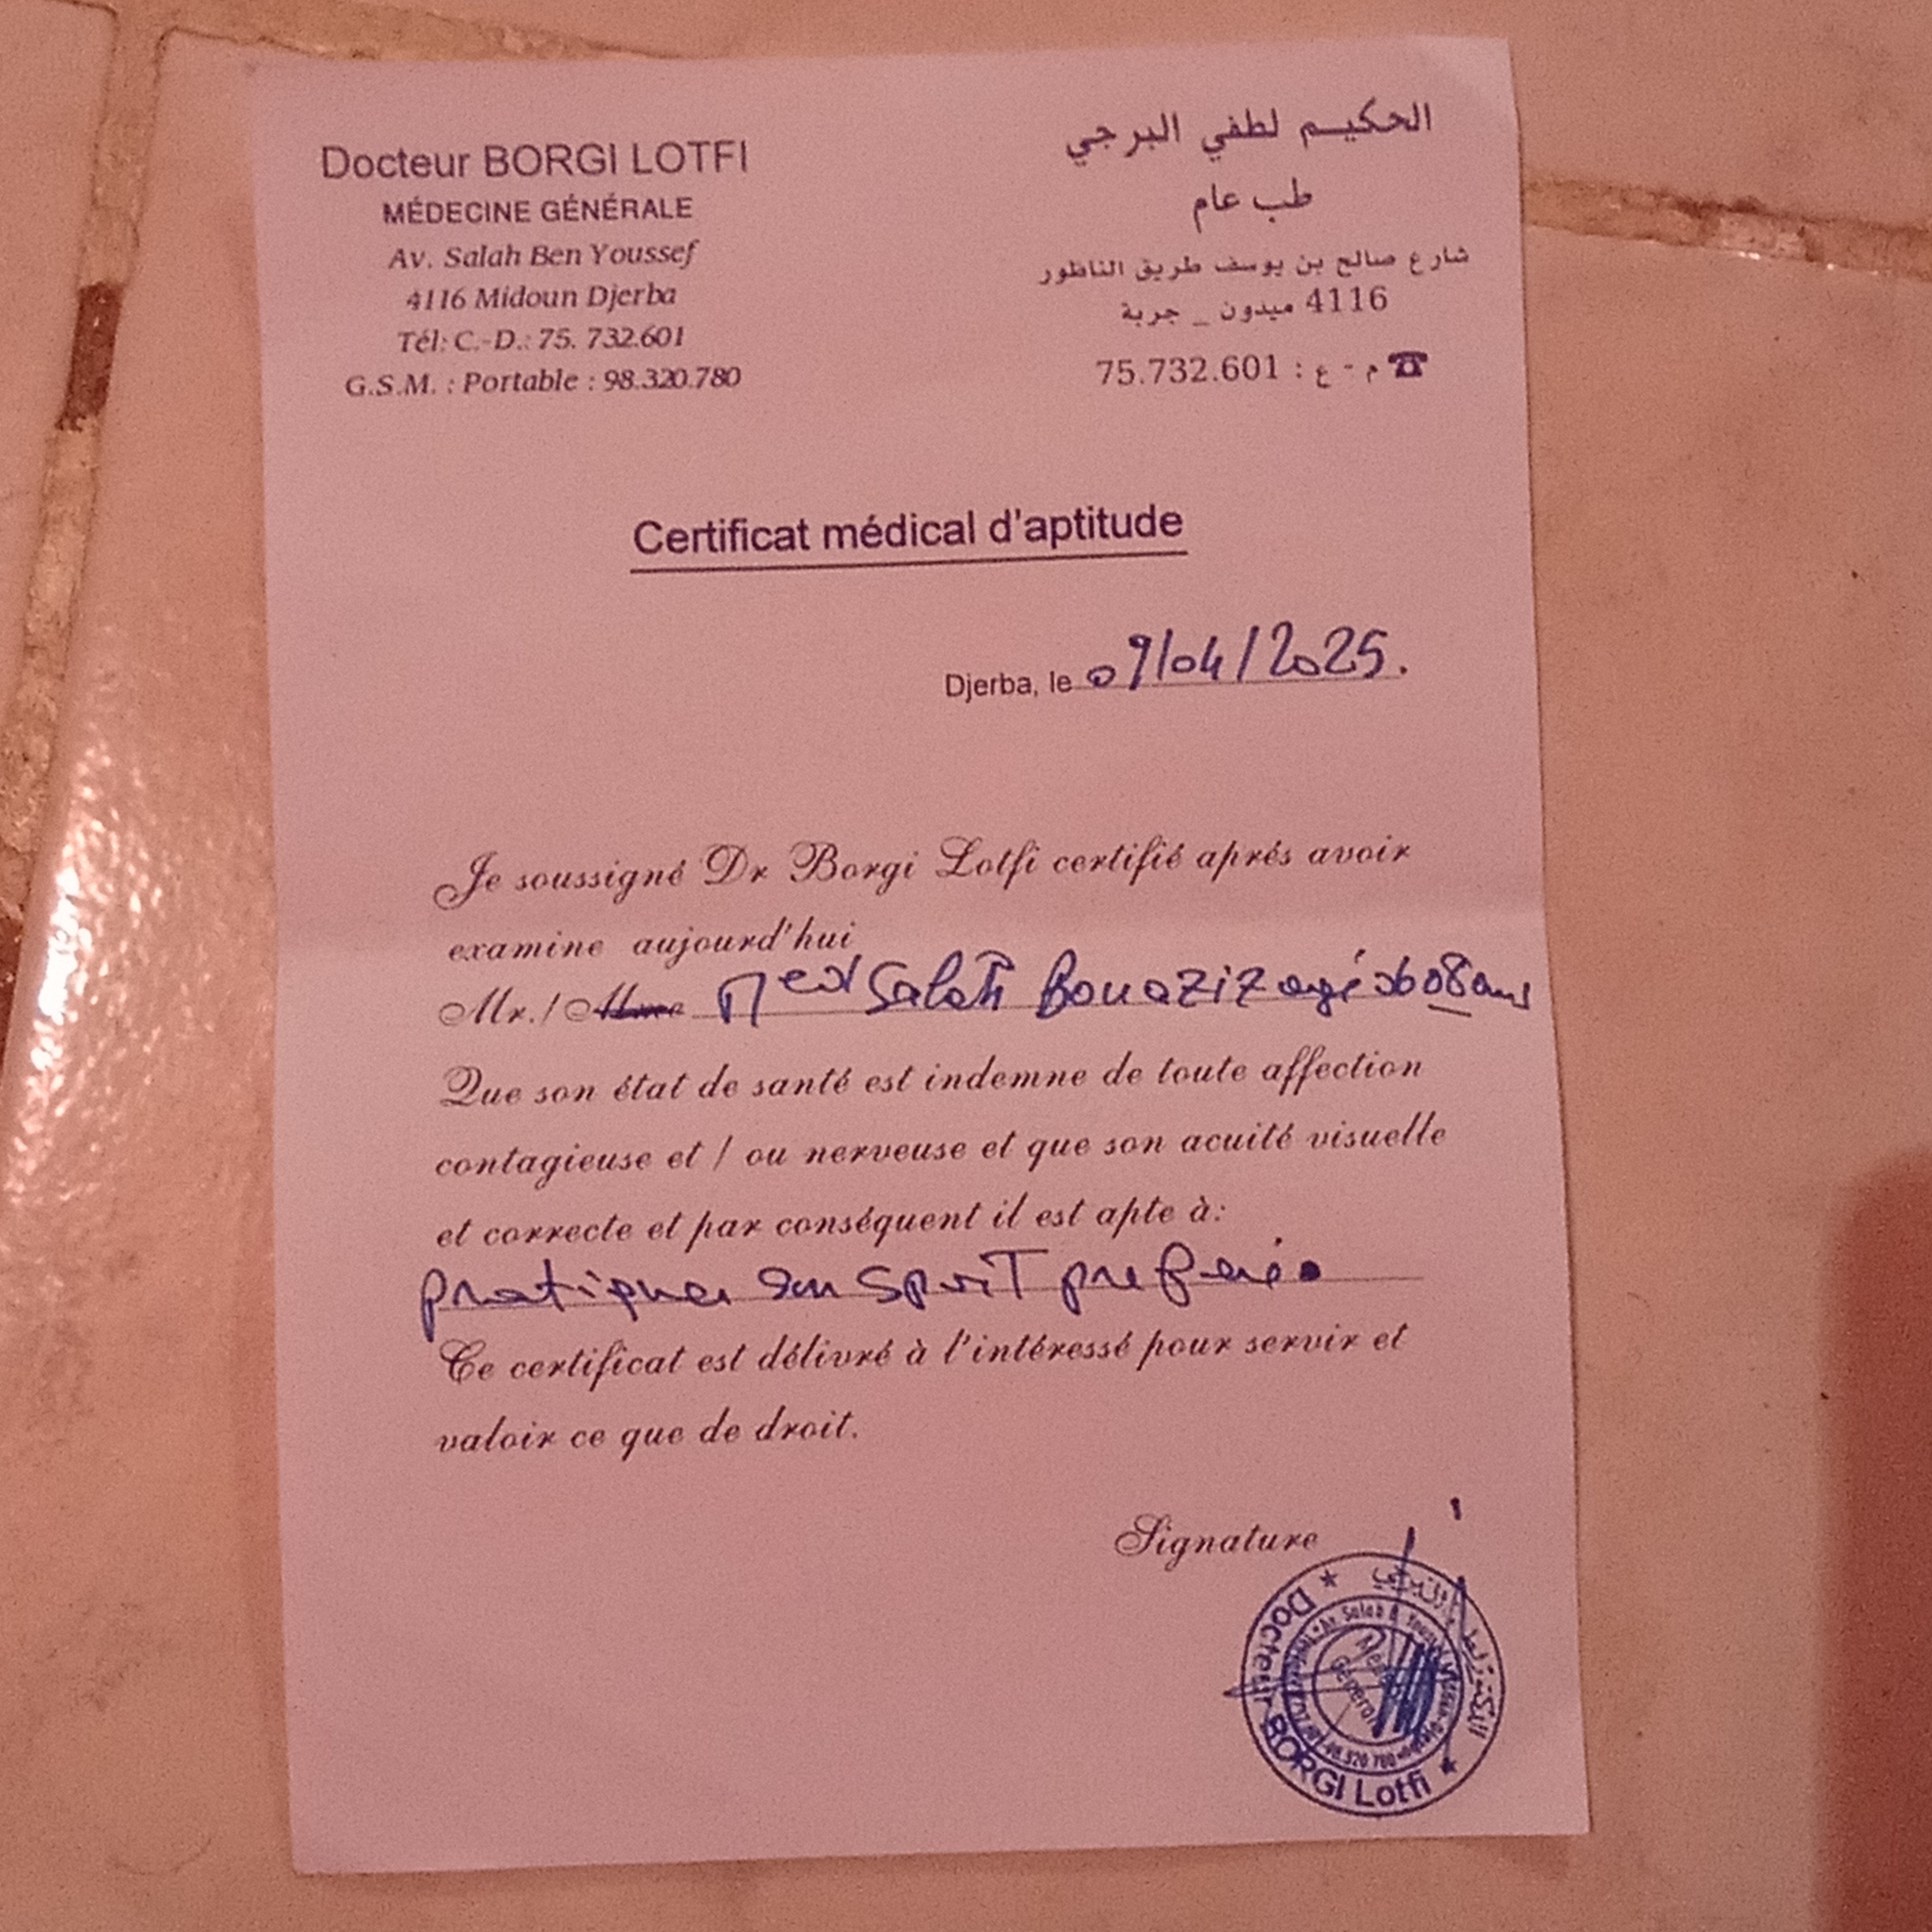 Docteur BORGI LOTFI
MÉDECINE GÉNÉRALE
Av. Salah Ben Youssef
4116 Midoun Djerba
Tél: C.-D.: 75. 732.601
G.S.M. : Portable : 98.320.780
الحكيم لطفي البرجي
طب عام
شارع صالح بن يوسف طريق الناظور
4116 ميدون _ جربة
☎ م - ع : 75.732.601
Certificat médical d'aptitude
Djerba, le 09/04/2025.
Je soussigné Dr Borgi Lotfi certifié aprés avoir
examine aujourd'hui
Mr./ Mme Med Salah Bouaziz agé 08 ans
Que son état de santé est indemne de toute affection
contagieuse et / ou nerveuse et que son acuité visuelle
et correcte et par conséquent il est apte à:
pratiquer son sport preferé.
Ce certificat est délivré à l'intéressé pour servir et
valoir ce que de droit.
Signature
Docteur BORGI Lotfi